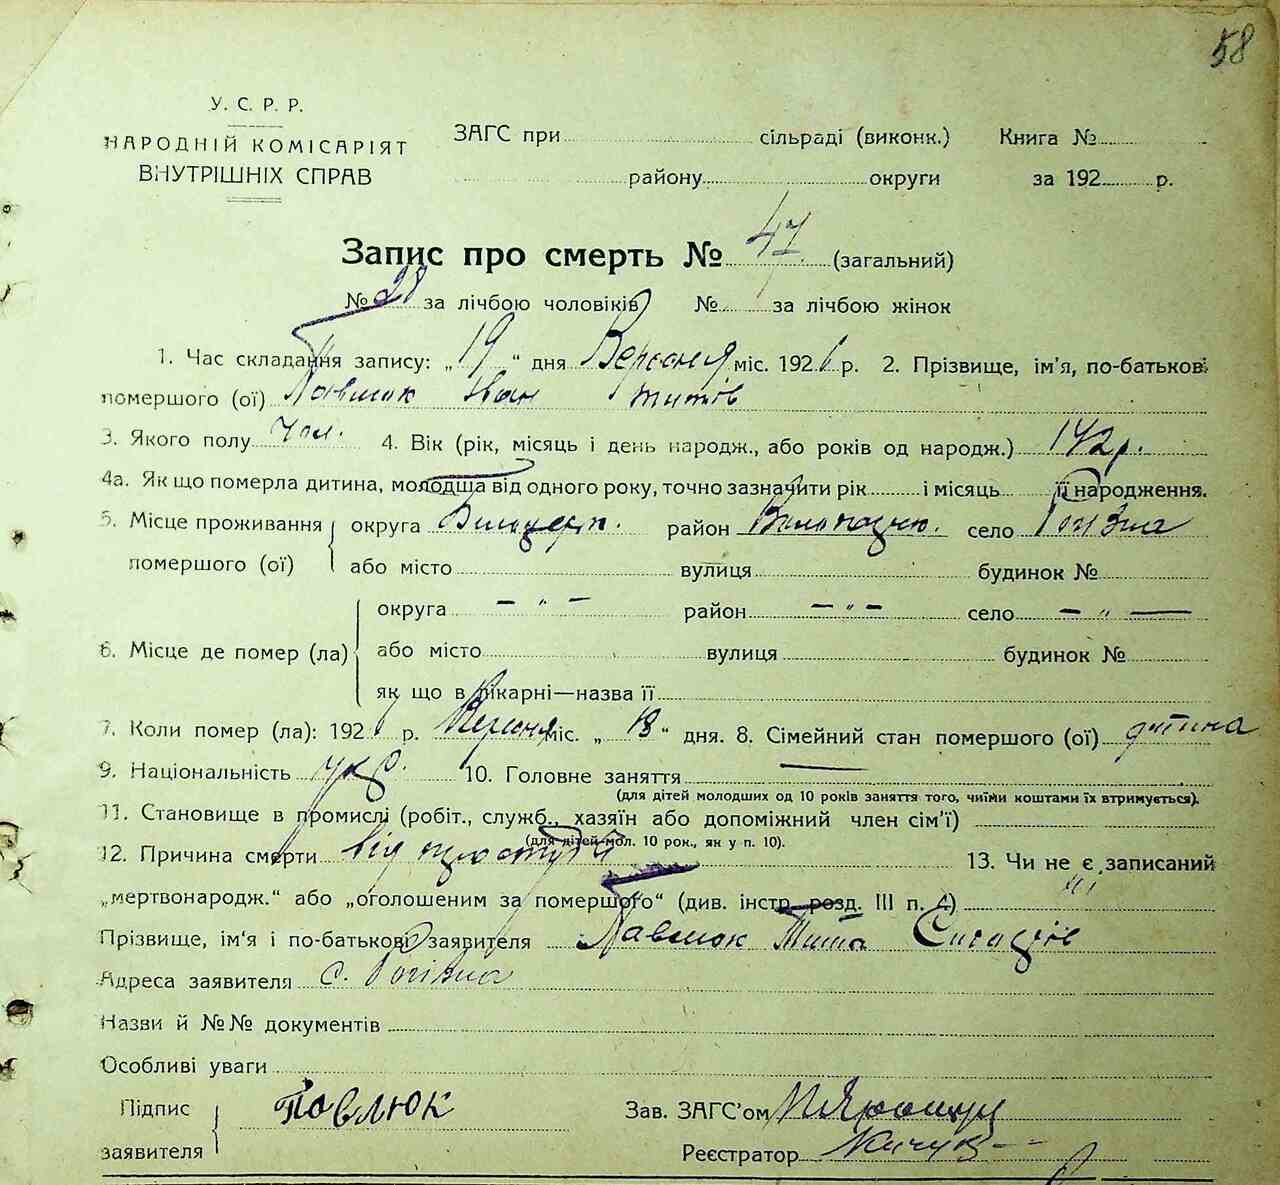 58
У. С. Р. Р.
НАРОДНІЙ КОМІСАРІЯТ
ВНУТРІШНІХ СПРАВ
ЗАГС при сільраді (виконк.) Книга №
району округи за 192 р.
Запис про смерть № 47 (загальний)
№ 28 за лічбою чоловіків № за лічбою жінок
1. Час складання запису: „19“ дня Вересня міс. 1926 р. 2. Прізвище, ім'я, по-батькові
помершого (ої) Павлюк Іван Титів
3. Якого полу чол. 4. Вік (рік, місяць і день народж., або років од народж.)
4а. Як що померла дитина, молодша від одного року, точно зазначити рік і місяць її народження.
5. Місце проживання помершого (ої) округа Білоцерк. район село Рогізна
або місто вулиця будинок №
6. Місце де помер (ла) округа — „ — район — „ — село — „ —
або місто вулиця будинок №
як що в лікарні—назва її
7. Коли помер (ла): 1926 р. Вересня міс. „18“ дня. 8. Сімейний стан помершого (ої) дитина
9. Національність укр. 10. Головне заняття —
(для дітей молодших од 10 років заняття того, чиїми коштами їх втримується).
11. Становище в промислі (робіт., служб., хазяїн або допоміжний член сім'ї)
(для дітей мол. 10 рок., як у п. 10).
12. Причина смерти від простуди 13. Чи не є записаний
„мертвонародж.“ або „оголошеним за помершого“ (див. інстр. розд. III п. 4) ні
Прізвище, ім'я і по-батькові заявителя Павлюк Тита
Адреса заявителя с. Рогізна
Назви й №№ документів
Особливі уваги
Підпис заявителя Павлюк Зав. ЗАГС'ом
Реєстратор